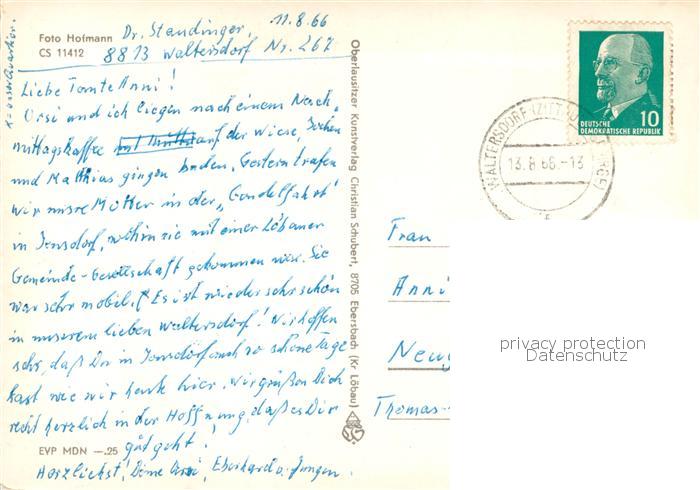 Foto Hofmann
CS 11412
Dr. Staudinger, 11.8.66
8813 Waltersdorf Nr. 267
Liebe Tante Anni!
Orsi und ich liegen nach einem Nach-
mittagskaffee auf der Wiese,
und Matthias gingen baden. Gestern trafen
wir unsre Mutter in der „Gondelfahrt"
in Jonsdorf, wohin sie mit einer Löbauer
Gemeinde-Gesellschaft gekommen war. Sie
war sehr mobil. Es ist wieder sehr schön
in unserem lieben Waltersdorf! Wir hoffen
sehr, daß Du in Jonsdorf auch so schöne Tage
hast wie wir heute hier. Wir grüßen Dich
recht herzlich in der Hoffnung, daß es Dir
gut geht.
EVP MDN —.25
Herzlichst! Deine Orsi, Eberhard u. Jungen.
Oberlausitzer Kunstverlag Christian Schubert, 8705 Ebersbach (Kr Löbau)
10
DEUTSCHE
DEMOKRATISCHE REPUBLIK
WALTERSDORF
13.8.66.-13
Frau
Anni
Thomas-
privacy protection
Datenschutz